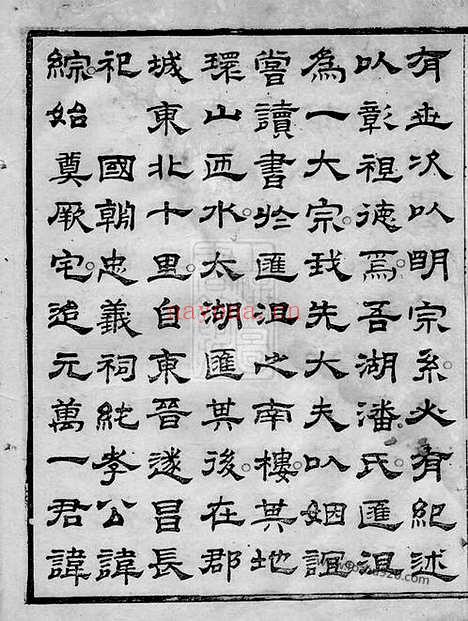 有世次以明宗系必有紀述
以彰祖德焉吾湖潘氏匯沮
為一大宗我先大夫以姻誼
嘗讀書於匯沮之南樓其地
環山西水太湖匯其後在郡
城東北十里自東晉遂昌長
祀 國朝忠義祠純孝公諱
綜始奠厥宅迨元萬一君諱